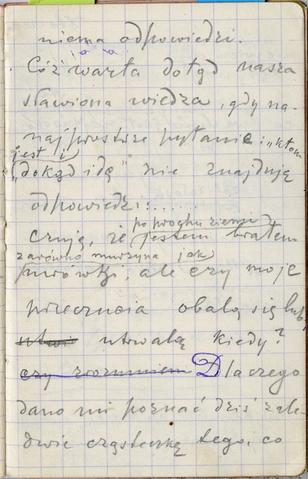 niema odpowiedzi.
Cóż warta dotąd nasza
sławiona wiedza, gdy na
najprostsze pytanie: „kto
jest i
„dokąd idę” nie znajdują
odpowiedzi:......
po prochu ziemi
czuję, że jestem bratem
zarówno murzyna jak
mrówki, ale czy moje
przeczucia obalą się lub
utrwalą kiedy?
czy zrozumiem Dlaczego
dano mi poznać dziś zale-
dwie cząsteczkę tego, co